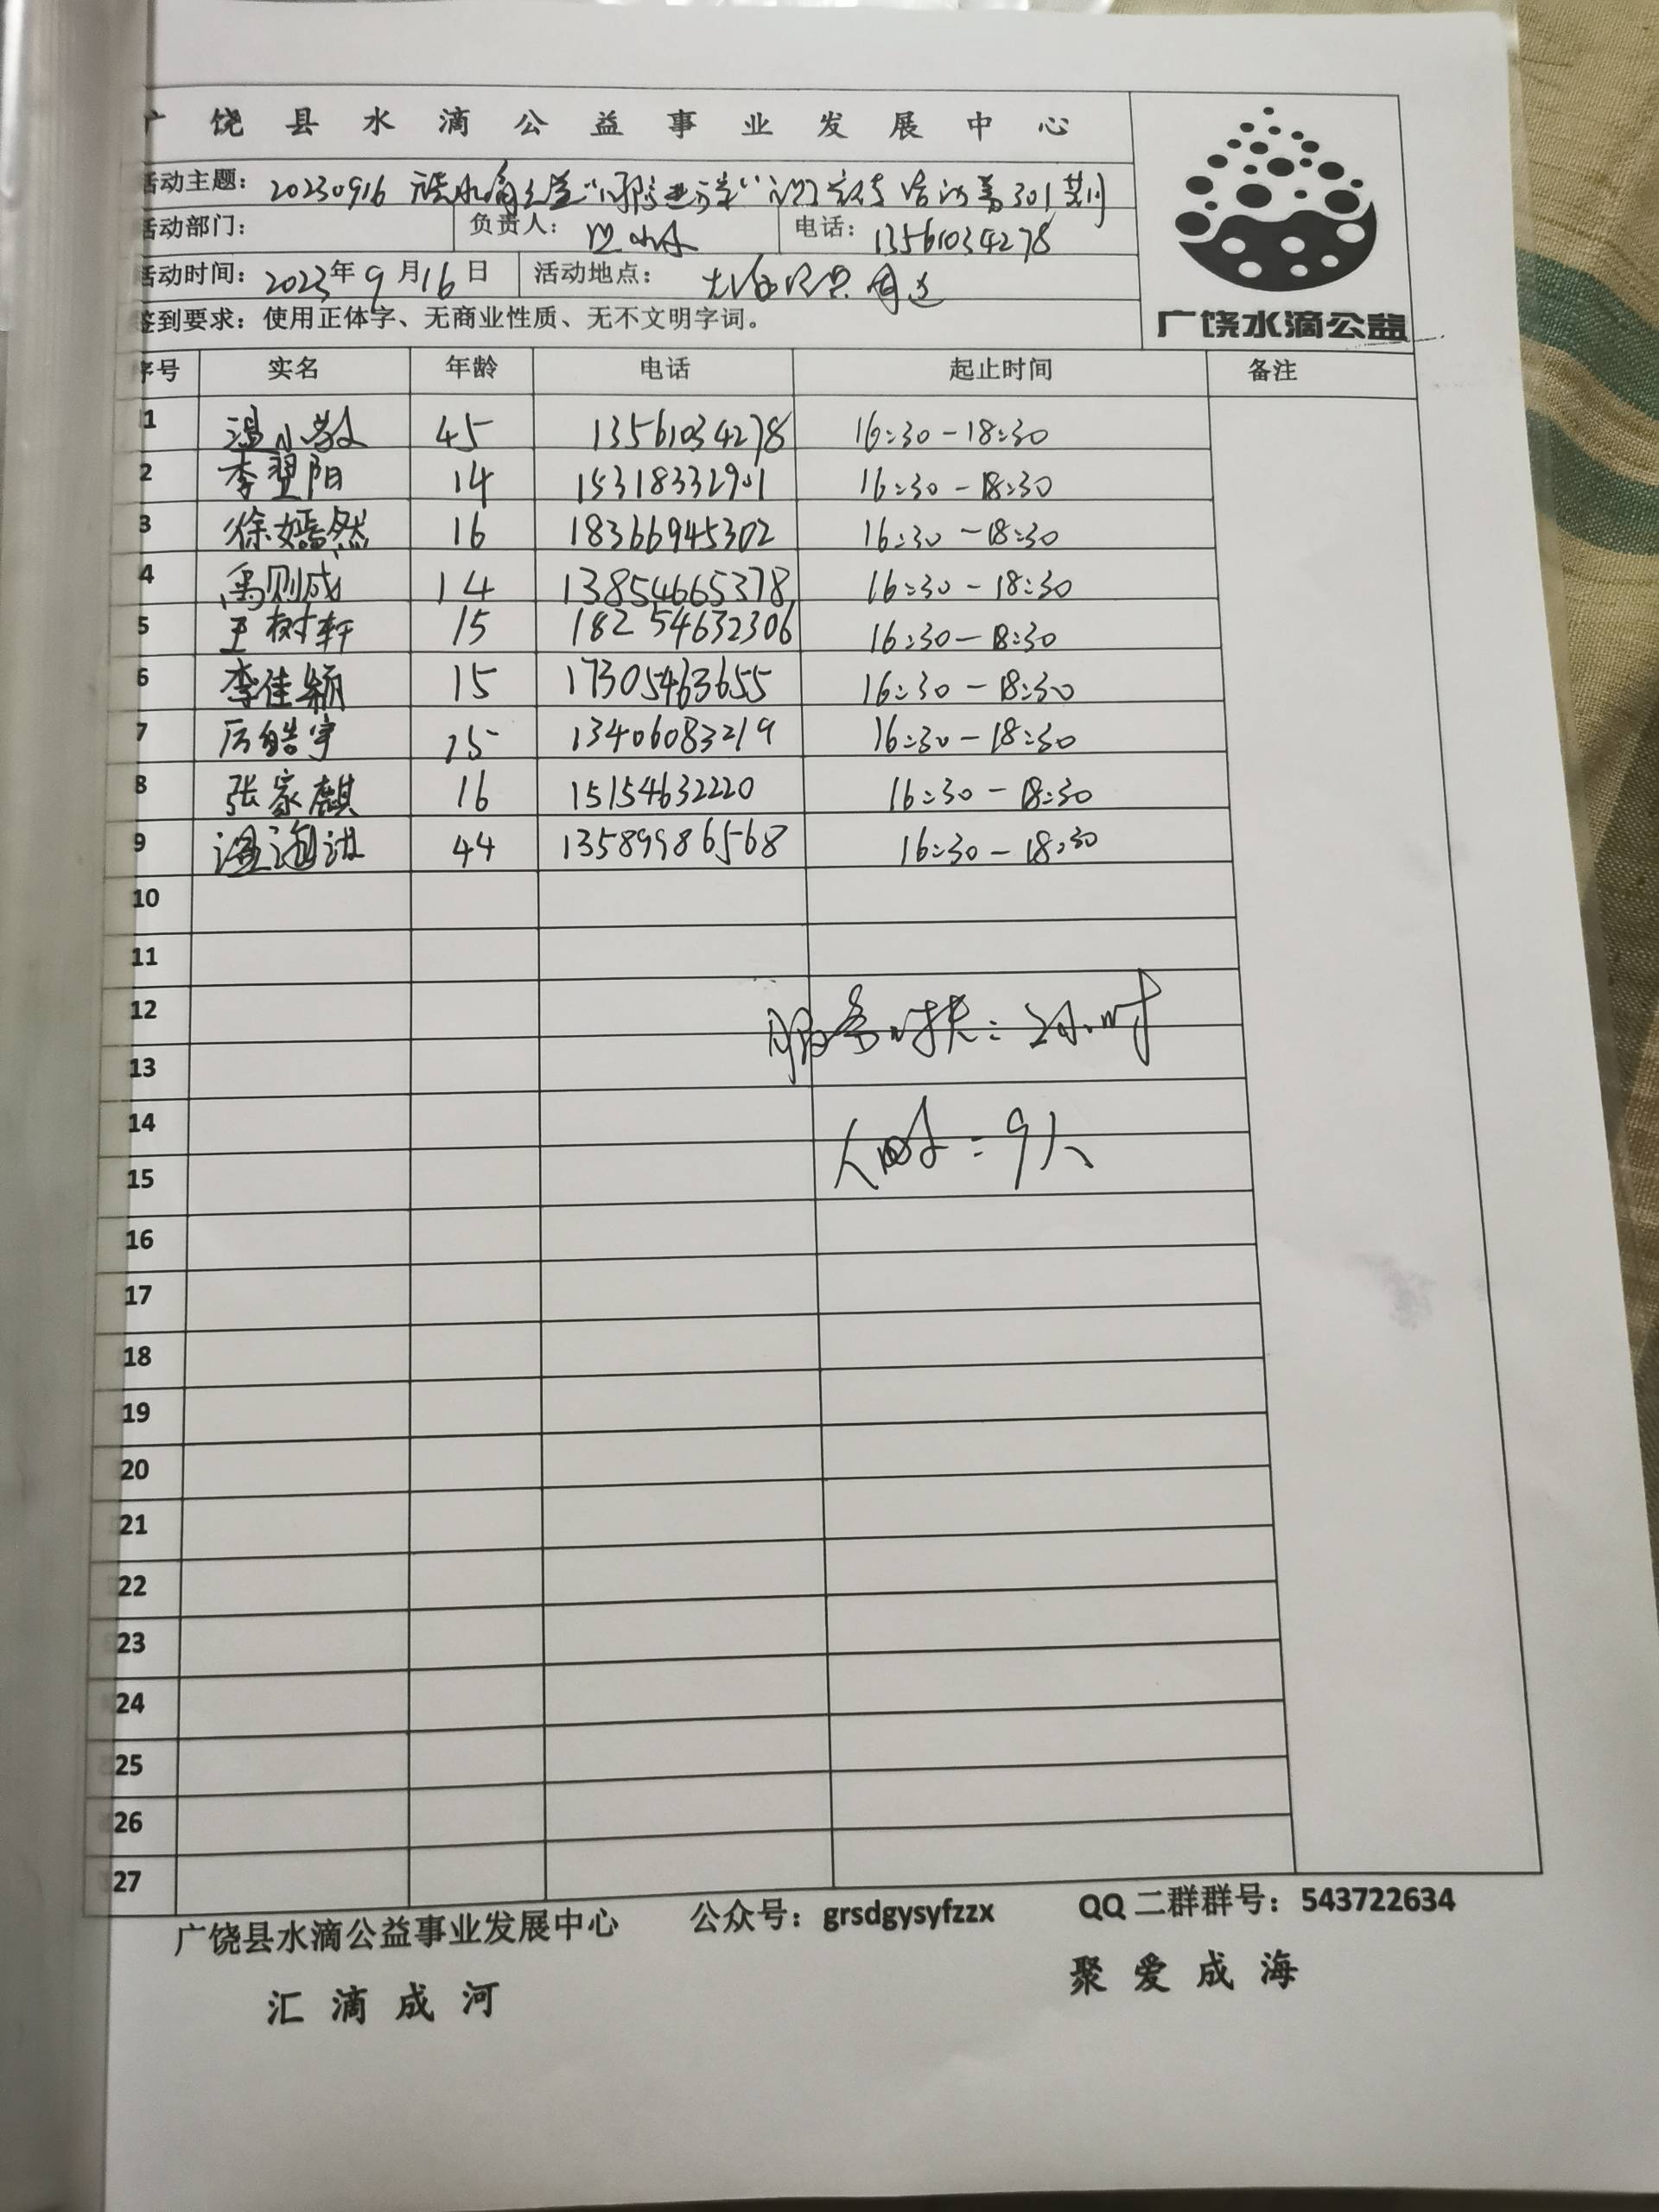 广饶县水滴公益事业发展中心
活动主题：20230916 301
活动部门： 负责人： 电话：13561034278
活动时间：2023年9月16日 活动地点：
签到要求：使用正体字、无商业性质、无不文明字词。
广饶水滴公益
序号 实名 年龄 电话 起止时间 备注
1 温小 45 13561034278 16:30-18:30
2 李翌阳 14 15318332901 16:30-18:30
3 徐嫣然 16 18366945302 16:30-18:30
4 禹则成 14 13854665378 16:30-18:30
5 王树轩 15 18254632306 16:30-18:30
6 李佳颖 15 17305463655 16:30-18:30
7 厉皓宇 15 13406083219 16:30-18:30
8 张家麒 16 15154632220 16:30-18:30
9 44 13589986568 16:30-18:30
10
11
12
服务时长：2小时
13
14
人 : 9人
15
16
17
18
19
20
21
22
23
24
25
26
27
广饶县水滴公益事业发展中心 公众号：grsdgysyfzzx QQ二群群号：543722634
汇滴成河 聚爱成海